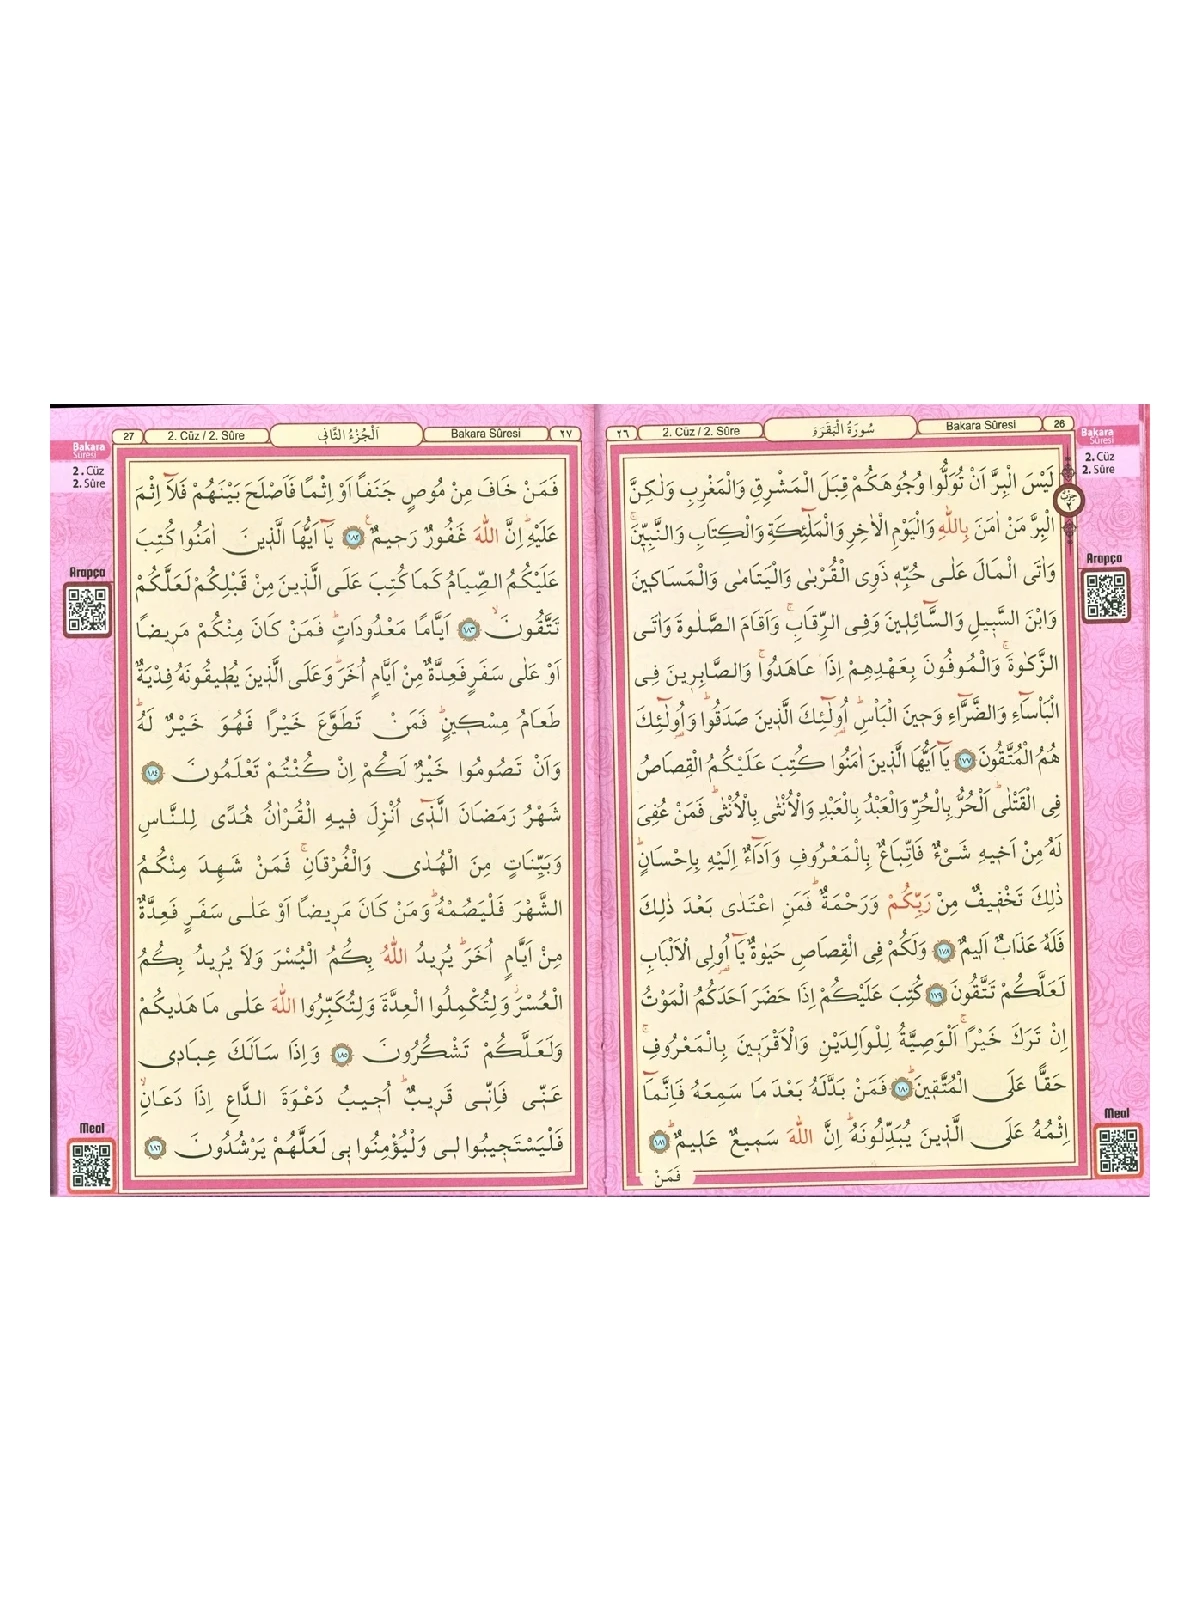 26
Bakara Sûresi
سُورَةُ الْبَقَرَةِ
2. Cüz / 2. Sûre
٢٦
Bakara
Sûresi
2. Cüz
2. Sûre
حزب
٢
Arapça
Meal
لَيْسَ الْبِرَّ اَنْ تُوَلُّوا وُجُوهَكُمْ قِبَلَ الْمَشْرِقِ وَالْمَغْرِبِ وَلٰكِنَّ
الْبِرَّ مَنْ اٰمَنَ بِاللّٰهِ وَالْيَوْمِ الْاٰخِرِ وَالْمَلٰٓئِكَةِ وَالْكِتَابِ وَالنَّبِيّ۪نَۚ
وَاٰتَى الْمَالَ عَلٰى حُبِّه۪ ذَوِي الْقُرْبٰى وَالْيَتَامٰى وَالْمَسَاك۪ينَ
وَابْنَ السَّب۪يلِ وَالسَّٓائِل۪ينَ وَفِي الرِّقَابِۚ وَاَقَامَ الصَّلٰوةَ وَاٰتَى
الزَّكٰوةَۚ وَالْمُوفُونَ بِعَهْدِهِمْ اِذَا عَاهَدُواۚ وَالصَّابِر۪ينَ فِي
الْبَأْسَٓاءِ وَالضَّرَّٓاءِ وَح۪ينَ الْبَأْسِۜ اُو۬لٰٓئِكَ الَّذ۪ينَ صَدَقُواۜ وَاُو۬لٰٓئِكَ
هُمُ الْمُتَّقُونَ ﴿١٧٧﴾ يَٓا اَيُّهَا الَّذ۪ينَ اٰمَنُوا كُتِبَ عَلَيْكُمُ الْقِصَاصُ
فِي الْقَتْلٰىۜ اَلْحُرُّ بِالْحُرِّ وَالْعَبْدُ بِالْعَبْدِ وَالْاُنْثٰى بِالْاُنْثٰىۜ فَمَنْ عُفِيَ
لَهُ مِنْ اَخ۪يهِ شَيْءٌ فَاتِّبَاعٌ بِالْمَعْرُوفِ وَاَدَٓاءٌ اِلَيْهِ بِاِحْسَانٍۜ
ذٰلِكَ تَخْف۪يفٌ مِنْ رَبِّكُمْ وَرَحْمَةٌۜ فَمَنِ اعْتَدٰى بَعْدَ ذٰلِكَ
فَلَهُ عَذَابٌ اَل۪يمٌ ﴿١٧٨﴾ وَلَكُمْ فِي الْقِصَاصِ حَيٰوةٌ يَٓا اُو۬لِي الْاَلْبَابِ
لَعَلَّكُمْ تَتَّقُونَ ﴿١٧٩﴾ كُتِبَ عَلَيْكُمْ اِذَا حَضَرَ اَحَدَكُمُ الْمَوْتُ
اِنْ تَرَكَ خَيْرًاۚ اَلْوَصِيَّةُ لِلْوَالِدَيْنِ وَالْاَقْرَب۪ينَ بِالْمَعْرُوفِۚ
حَقًّا عَلَى الْمُتَّق۪ينَۜ ﴿١٨٠﴾ فَمَنْ بَدَّلَهُ بَعْدَ مَا سَمِعَهُ فَاِنَّمَٓا
اِثْمُهُ عَلَى الَّذ۪ينَ يُبَدِّلُونَهُۜ اِنَّ اللّٰهَ سَم۪يعٌ عَل۪يمٌۜ ﴿١٨١﴾
فَمَنْ
٢٧
Bakara Sûresi
اَلْجُزْءُ الثَّانِي
2. Cüz / 2. Sûre
27
Bakara
Sûresi
2. Cüz
2. Sûre
Arapça
Meal
فَمَنْ خَافَ مِنْ مُوصٍ جَنَفًا اَوْ اِثْمًا فَاَصْلَحَ بَيْنَهُمْ فَلَٓا اِثْمَ
عَلَيْهِۜ اِنَّ اللّٰهَ غَفُورٌ رَح۪يمٌ۟ ﴿١٨٢﴾ يَٓا اَيُّهَا الَّذ۪ينَ اٰمَنُوا كُتِبَ
عَلَيْكُمُ الصِّيَامُ كَمَا كُتِبَ عَلَى الَّذ۪ينَ مِنْ قَبْلِكُمْ لَعَلَّكُمْ
تَتَّقُونَۙ ﴿١٨٣﴾ اَيَّامًا مَعْدُودَاتٍۜ فَمَنْ كَانَ مِنْكُمْ مَر۪يضًا
اَوْ عَلٰى سَفَرٍ فَعِدَّةٌ مِنْ اَيَّامٍ اُخَرَۜ وَعَلَى الَّذ۪ينَ يُط۪يقُونَهُ فِدْيَةٌ
طَعَامُ مِسْك۪ينٍۜ فَمَنْ تَطَوَّعَ خَيْرًا فَهُوَ خَيْرٌ لَهُۜ
وَاَنْ تَصُومُوا خَيْرٌ لَكُمْ اِنْ كُنْتُمْ تَعْلَمُونَ ﴿١٨٤﴾
شَهْرُ رَمَضَانَ الَّذ۪ٓي اُنْزِلَ ف۪يهِ الْقُرْاٰنُ هُدًى لِلنَّاسِ
وَبَيِّنَاتٍ مِنَ الْهُدٰى وَالْفُرْقَانِۚ فَمَنْ شَهِدَ مِنْكُمُ
الشَّهْرَ فَلْيَصُمْهُۜ وَمَنْ كَانَ مَر۪يضًا اَوْ عَلٰى سَفَرٍ فَعِدَّةٌ
مِنْ اَيَّامٍ اُخَرَۜ يُر۪يدُ اللّٰهُ بِكُمُ الْيُسْرَ وَلَا يُر۪يدُ بِكُمُ
الْعُسْرَۘ وَلِتُكْمِلُوا الْعِدَّةَ وَلِتُكَبِّرُوا اللّٰهَ عَلٰى مَا هَدٰيكُمْ
وَلَعَلَّكُمْ تَشْكُرُونَ ﴿١٨٥﴾ وَاِذَا سَاَلَكَ عِبَاد۪ي
عَنّ۪ي فَاِنّ۪ي قَر۪يبٌۜ اُج۪يبُ دَعْوَةَ الدَّاعِ اِذَا دَعَانِۙ
فَلْيَسْتَج۪يبُوا ل۪ي وَلْيُؤْمِنُوا ب۪ي لَعَلَّهُمْ يَرْشُدُونَ ﴿١٨٦﴾